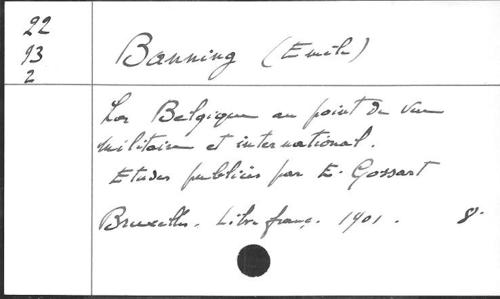 22
93
2
Banning (Emile)
La Belgique au point de vue
militaire et international.
Etudes publiées par E. Gossart
Bruxelles. Libr. franç. 1901. 8°